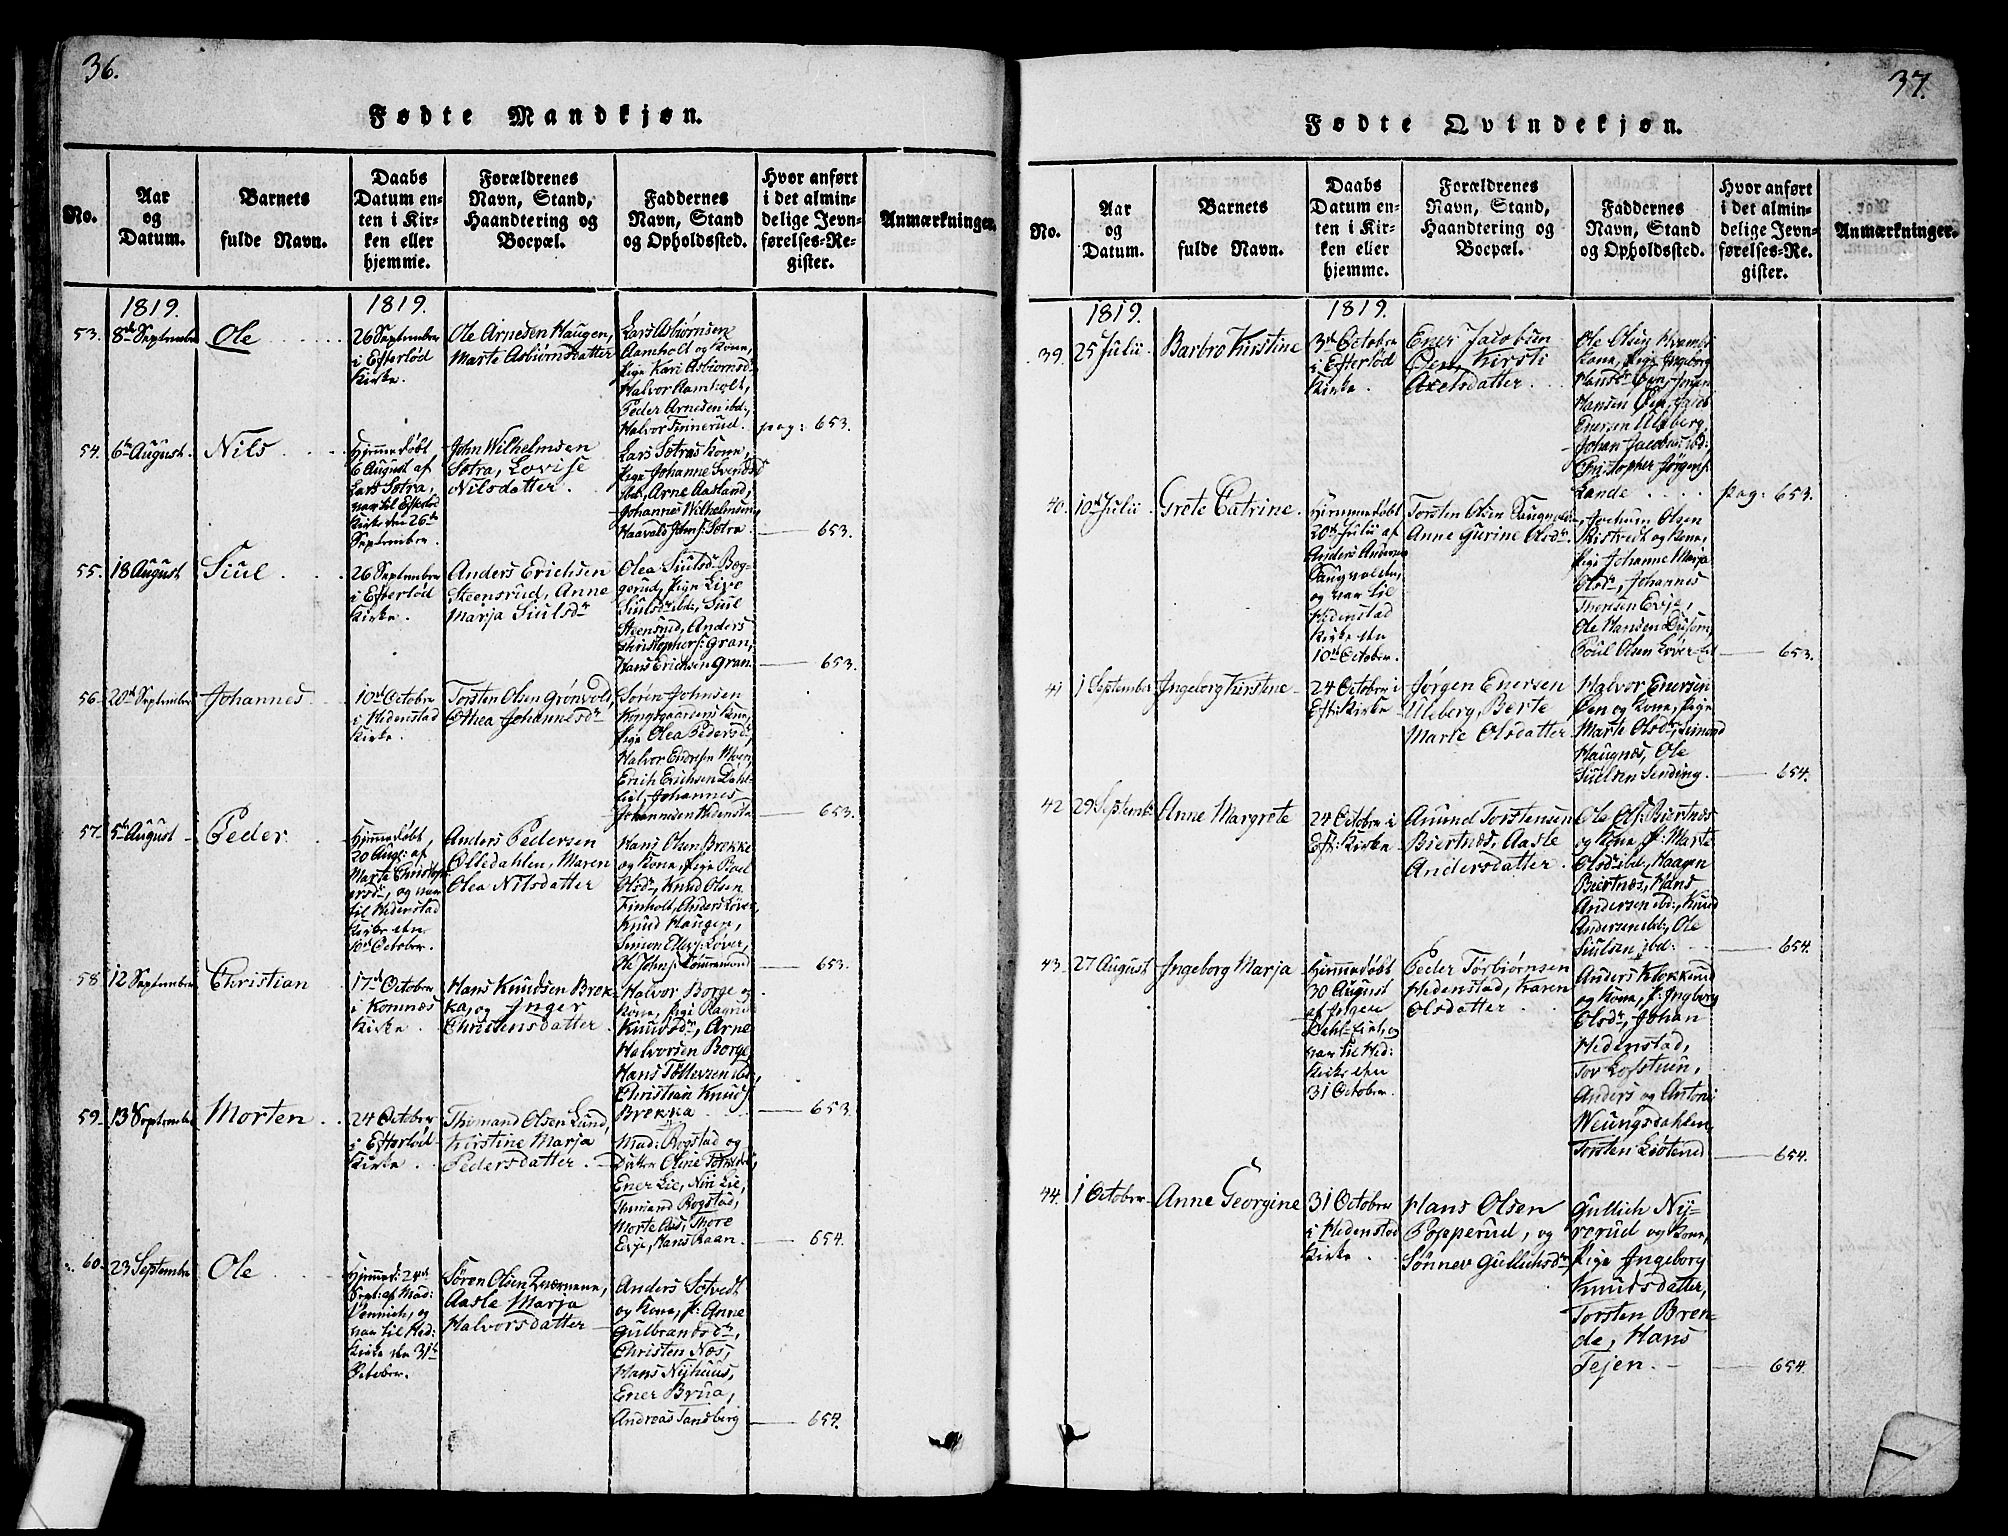 36.
Fødte Mandkjøn.
No.
Aar
og
Datum.
Barnets
fulde Navn.
Daabs
Datum en-
ten i Kir-
ken eller
hjemme.
Forældrenes
Navn, Stand,
Haandtering og
Boepæl.
Faddernes
Navn, Stand
og Opholdssted.
Hvor anført
i det almin-
delige Jevn-
førelses-Re-
gister.
Anmærkninger.
1819.
1819.
53.
8de September
Ole
26 September
i Efterlød
Kirke.
Ole Arnesen Haugen,
Marte Asbiørnsdatter
Lars Asbiørnsen
Aamholt og Kone,
Pige Kari Asbiørnsdr
Halvor Aamholt,
Peder Arnesen ibd:,
Halvor Finnerud.
pag: 653.
54.
6te August.
Nils
Hjemmedøbt
6 August af
Lars Sotra,
var til Efterlød
Kirke den 26de
September.
John Wilhelmsen
Sotra, Lovise
Nilsdatter.
Lars Sotras Kone,
Pige Johanne Svendsd
ibd:, Arne Aasland,
Johannes Wilhelmsen,
Haavald Johns: Sotra
653.
55.
18 August
Siul
26 September
i Efterlød
Kirke.
Anders Erichsen
Steensrud, Anne
Marja Siulsdr
Olea Siulsdr Bog-
gerud, Pige Live
Siulsdr ibd:, Siul
Steensrud, Anders
Christophers: Gran,
Hans Erichsen Gran
653.
56.
20de September
Johannes
10de October
i Hedenstad
Kirke.
Torsten Olsen Grønvold,
Othea Johannesdr
Søren Johnsen
Kongsgaardens Kone,
Pige Olea Pedersdr,
Halvor Moen,
Erich Erichsen Dahl-
fiel, Johannes
Johannesen Hedensta
653.
57.
5te August
Peder
Hjemmedøbt
30 Aug: af
Marte Christoph-
ersdr, og var
til Hedenstad
Kirke den
10de October.
Anders Pedersen
Olledahlen, Maren
Olea Nilsdatter
Hans Olsen Brekke
og Kone, Pige
Olsdr, Knud Olsen
Finholt, Anders Løver,
Knud Haugen,
Simon Ellefs: Løver,
Ole Johns:
653.
58.
12 September
Christian
17de October
i Komnæs
Kirke
Hans Knudsen Brek-
ka, og Inger
Christensdatter.
Halvor Borge og
Kone, Pige Ragnild
Knudsdr, Arne
Halvorsen Borge,
Hans Tollevsen ibd:,
Christian Knuds:
Brekka
653.
59.
13de September
Morten
24 October
i Efterlød
Kirke
Thomand Olsen Lund,
Kirstine Marja
Pedersdatter.
Mad: Rogstad og
Datter Oline
Ener Lie, Niri Lie,
Thomand Rogstad,
Morte Aas, Thore
Evje, Hans Raan.
654.
60.
23 September
Ole
Hjemmed: 24de
Sept: af Mad:
og
var til Hed:
Kirke den 31te
October.
Søren Olsen
Aasle Marja
Halvorsdatter
Anders Sotvedt
og Kone, P: Anne
Gulbrandsdr,
Christen Næs,
Hans Nyhuus,
Ener Brua,
Andreas Tandberg
654.
37.
Fødte Qvindekjøn.
No.
Aar
og
Datum.
Barnets
fulde Navn.
Daabs
Datum en-
ten i Kir-
ken eller
hjemme.
Forældrenes
Navn, Stand,
Haandtering og
Boepæl.
Faddernes
Navn, Stand
og Opholdssted.
Hvor anført
i det almin-
delige Jevn-
førelses-Re-
gister.
Anmærkninger.
1819.
1819.
39.
25 Julii
Barbro Kirstine
3de October
i Efterlød
Kirke.
Ener Jacobsen
Øen, Kirsti
Axelsdatter.
Ole Olsen
Kone, Pige Ingeborg
Hansdr Øen, Jørgen
Hansen Øen, Jacob
Enersen Uleberg,
Johan Jacobsen ibd:
Christopher Jørgens:
Lande
pag: 653.
40.
10de Julii
Grete Catrine.
Hjemmedøbt
20de Julii af
Anders Andersen
Saugvolden,
og var til
Hedenstad
Kirke den
10de October.
Torsten Olsen Saugvolden,
Anne Gurine Olsdr.
Jochum Olsen
Ristvedt og Kone,
Pige Johanne Marja
Olsdr, Johannes
Thorsen Evje,
Ole Hansen
Poul Olsen Løver-Eie
653.
41
1 September
Ingeborg Kirstine
24 October i
Eft: Kirke
Jørgen Enersen
Uleberg, Berte
Marte Olsdatter
Halvor Enersen
Øen og Kone, Pige
Marte Olsdr, Simond
Haugnæs, Ole
Siulsen Sending.
654.
42
29 September
Anne Margrete
24 October i
Eft: Kirke
Amund Torstensen
Biertnæs, Aasle
Andersdatter.
Ole Ols: Biertnæs
og Kone, P: Marte
Olsdr ibd:, Haagen
Biertnæs, Hans
Andersen ibd:, Knud
Andersen ibd:, Ole
Siulsen ibd:
654.
43.
27 August
Ingeborg Marja
Hjemmedøbt
30 August
af Jørgen
Dahl-Eiet, og
var til Hed:
Kirke den
31 October.
Peder Torbiørnsen
Hedenstad, Karen
Olsdatter
Anders Klokkerud
og Kone, P: Ingeborg
Olsdr, Johan
Hedenstad,
Tov Lofstuen,
Anders og Antoni
Weungsdahlen,
Torsten
654.
44.
1 October
Anne Georgine
31 October
i Hedenstad
Kirke
Hans Olsen
Popperud, og
Sønnev Gullichsdr,
Gullich Ny-
rerud og Kone,
Pige Ingeborg
Knudsdatter,
Torsten Bren-
de, Hans
Tejen.
654.